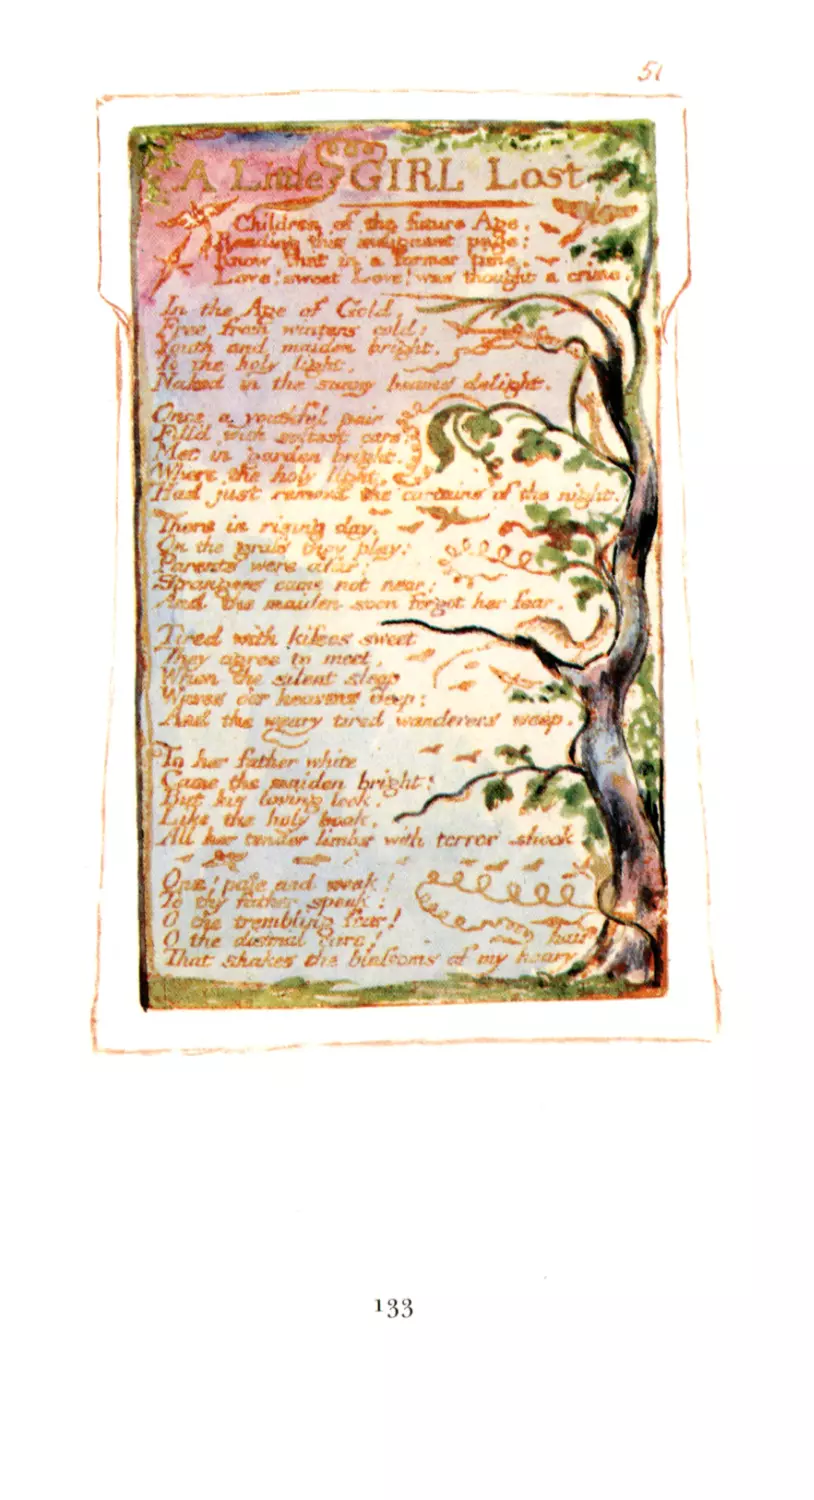 51
A Little GIRL Lost
Children of the future Age,
Reading this indignant page:
Know that in a former time,
Love! sweet Love! was thought a crime.
In the Age of Gold,
Free from winters cold:
Youth and maiden bright,
To the holy light,
Naked in the sunny beams delight.
Once a youthful pair
Fill'd with softest care:
Met in garden bright,
Where the holy light,
Had just remov'd the curtains of the night.
There in rising day,
On the grass they play:
Parents were afar:
Strangers came not near:
And the maiden soon forgot her fear.
Tired with kisses sweet
They agree to meet,
When the silent sleep
Waves o'er heavens deep:
And the weary tired wanderers weep.
To her father white
Came the maiden bright:
But his loving look,
Like the holy book,
All her tender limbs with terror shook
Ona! pale and weak!
To thy father speak:
O the trembling fear!
O the dismal care!
That shakes the blossoms of my hoary hair
133